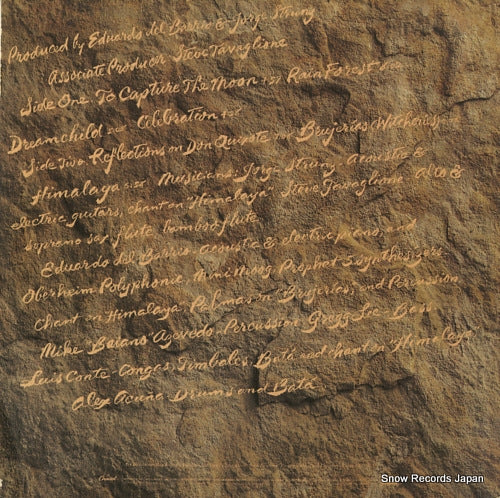 Produced by Eduardo del Barrio & Jorge Strunz
Associate Producer Steve Tavaglione
Side One To Capture The Moon Rain Forest
Dreamchild Celebration
Side Two Reflections on Don Quixote Brujerias (Witchcries)
Himalaya Musicians: Jorge Strunz - Acoustic &
electric guitars, chant on "Himalaya" Steve Tavaglione - Alto &
soprano sax, flute, bamboo flute
Eduardo del Barrio - Acoustic & electric piano, and
Oberheim Polyphonic, Mini Moog, Prophet 5 synthesizers
chant on Himalaya. Palmas on Brujerias, and Percussion
Mike "Baiano" Azevedo - Percussion Gregg Lee - Bass
Luis Conte - Congas, Timbales, Bata and chant on "Himalaya"
Alex Acuña - Drums and Bata
Snow Records Japan